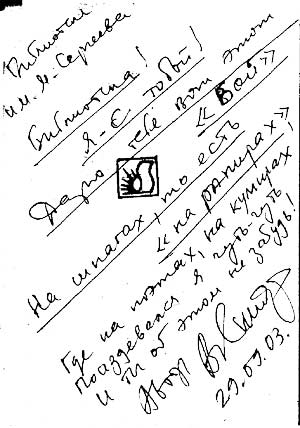 Библиотеке
им. М. Сергеева
Библиотека!
Я - с тобой!
Дарю тебе вот этот
«Бой»
На шпагах, то есть
«на рапирах»,
Где на поэтах, на кумирах,
Поиздевался я чуть-чуть
И ты об этом не забудь!
Автор
29.09.03.